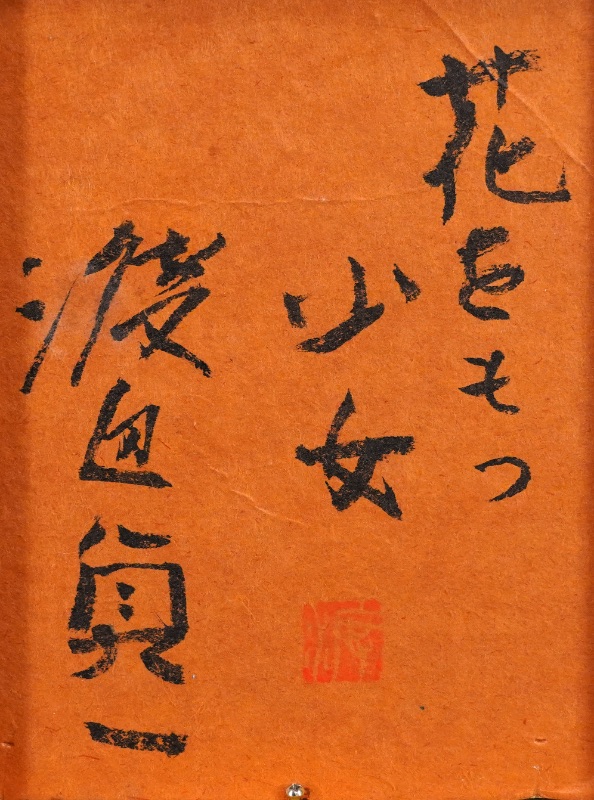 花をもつ
少女
渡辺貞一